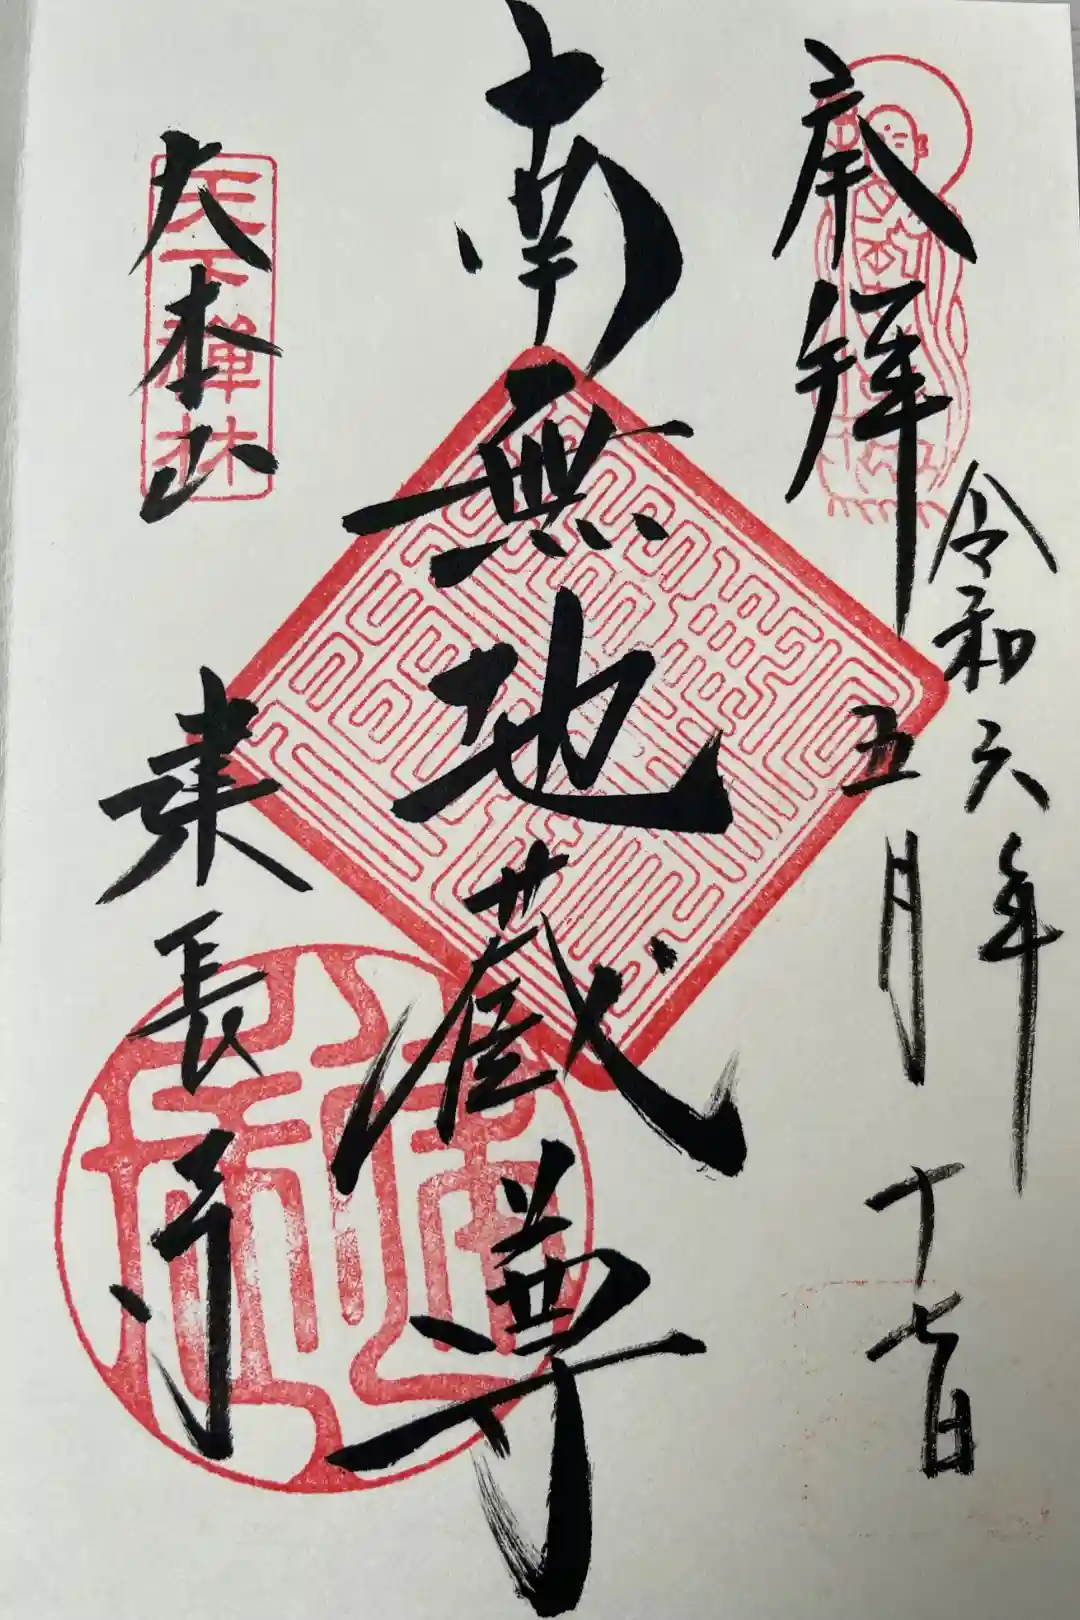 奉拝
令和六年
五月十七日
南無地蔵尊
大本山
建長寺
天下禅林